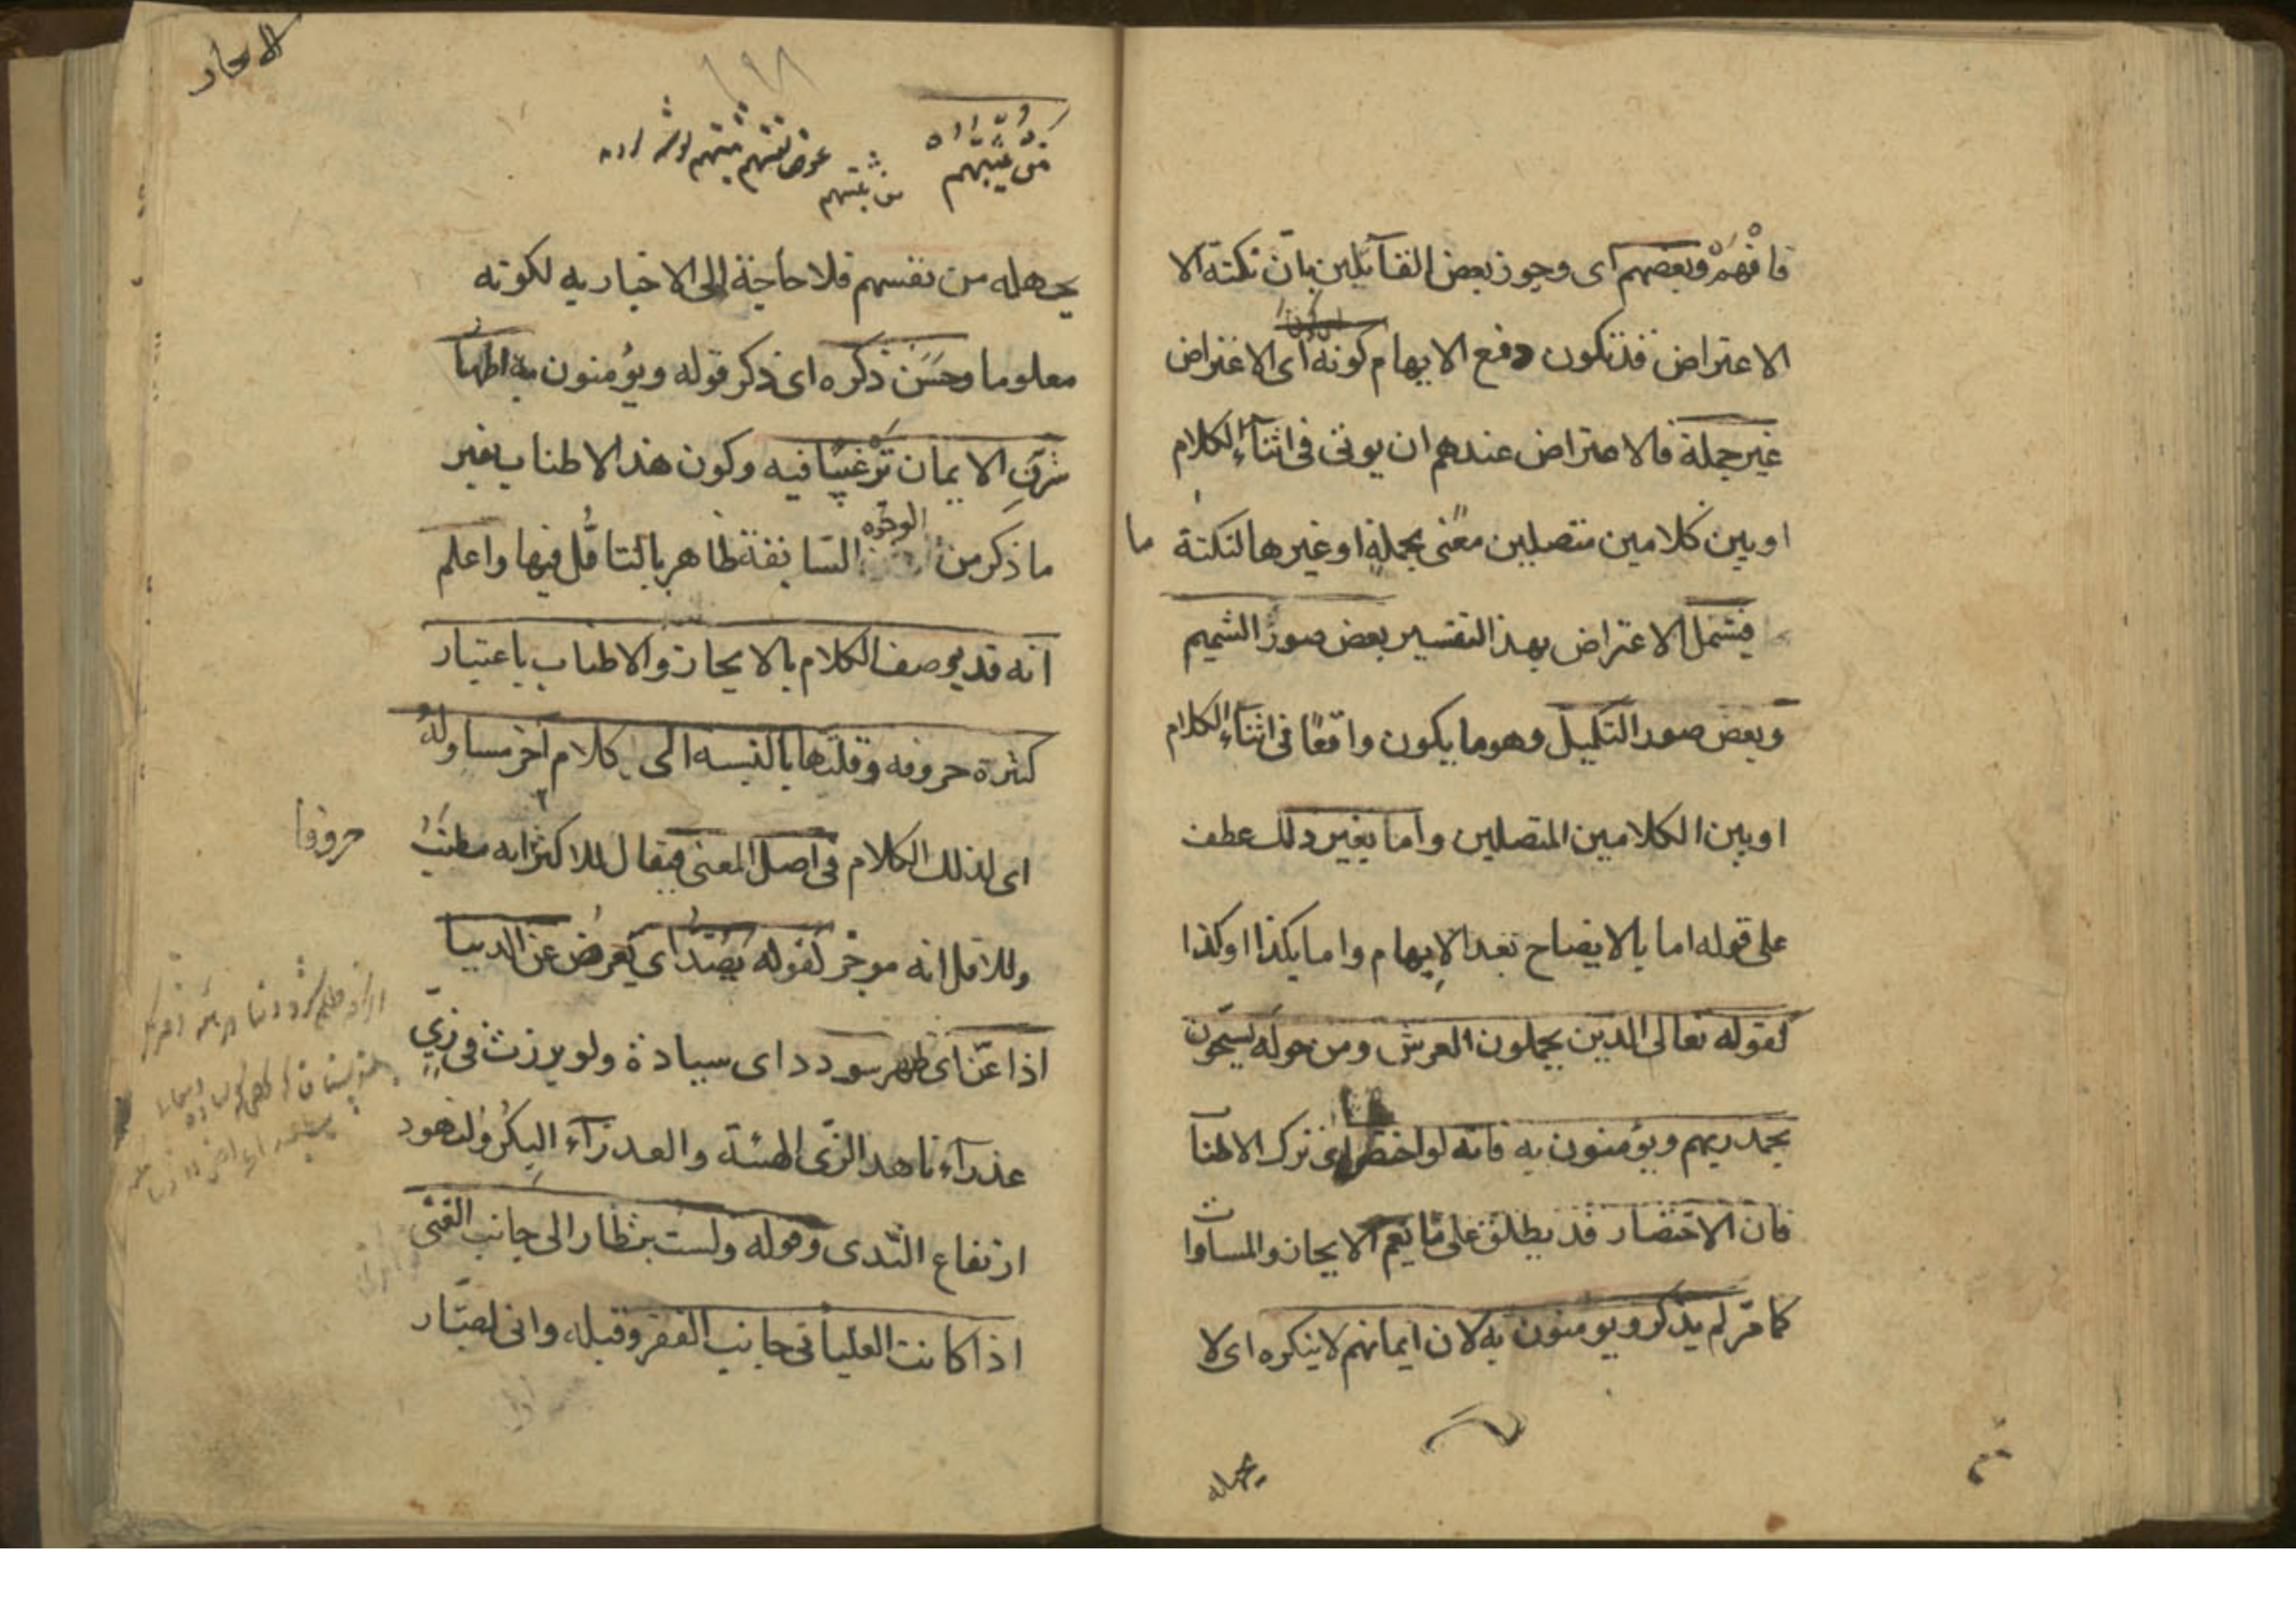 فافهم وبعضهم اى وجوز بعض القآئلين بان نكتة الا
الاعتراض قد تكون دفع الايهام كونه اى الاعتراض
غير جملة فالاعتراض عندهم ان يوتى فى اثنآء الكلام
او بين كلامين متصلين معنى بجملة او غيرها لنكتة ما
فيشمل الاعتراض بهذا التفسير بعض صور التتميم
وبعض صور التكميل وهو ما يكون واقعًا فى اثنآء الكلام
او بين الكلامين المتصلين واما بغير ذلك عطف
على قوله اما بالايضاح بعد الايهام واما بكذا او كذا
كقوله تعالى الذين يحملون العرش ومن حوله يسبحون
بحمد ربهم ويؤمنون به فانه لو اختصر اى ترك الاطنا
فان الاختصار قد يطلق على ما يعم الايجاز والمساوات
كما مر لم يذكر ويومنون به لان ايمانهم لا ينكره اى لا
يجهله
الايجاز
١٩٨
يجهله من نفسهم فلا حاجة الى الاخبار به لكونه
معلوما وحسن ذكره اى ذكر قوله ويؤمنون به اظهار
شرف الايمان ترغيبًا فيه وكون هذا الاطناب بغير
ما ذكر من الوجوه السابقة ظاهر بالتأمل فيها واعلم
انه قد يوصف الكلام بالايجاز والاطناب باعتبار
كثرة حروفه وقلتها بالنسبة الى كلام آخر مساو له
اى لذلك الكلام فى اصل المعنى فيقال للاكثر انه مطنب
حروفا
وللاقل انه موجز كقوله يصد اى يعرض عن الدنيا
اذا عنّ اى ظهر سودد اى سيادة ولو برزت فى زىّ
عذرآء ناهد الزىّ الهيئة والعذرآء البكر والنهود
ارتفاع الثدى وقوله ولست بنظار الى جانب الغنى
اذا كانت العليا فى جانب الفقر وقبله وانى لصبّار